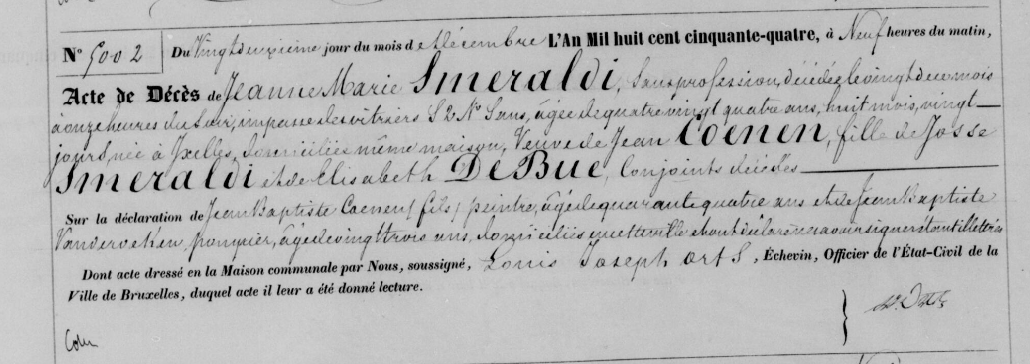 N° 5002 Du Vingt deuxième jour du mois de Décembre L'An Mil huit cent cinquante-quatre, à Neuf heures du matin,
Acte de Décès de Jeanne Marie Smeraldi, sans profession, décédée le vingt de ce mois
à onze heures du soir, impasse des vitriers S 2 N° Sans, âgée de quatre vingt quatre ans, huit mois, vingt
jours, née à Ixelles, domiciliée même maison, Veuve de Jean Coenen, fille de Josse
Smeraldi et de Elisabeth De Bue, Conjoints décédés
Sur la déclaration de Jean Baptiste Coenen (fils) peintre, âgé de quarante quatre ans et de Jean Baptiste
Vanderveken, âgé de vingt trois ans, domiciliés en cette ville et ont déclaré ne savoir signer étant illettrés
Dont acte dressé en la Maison communale par Nous, soussigné, Louis Joseph Orts, Échevin, Officier de l'État-Civil de la
Ville de Bruxelles, duquel acte il leur a été donné lecture.